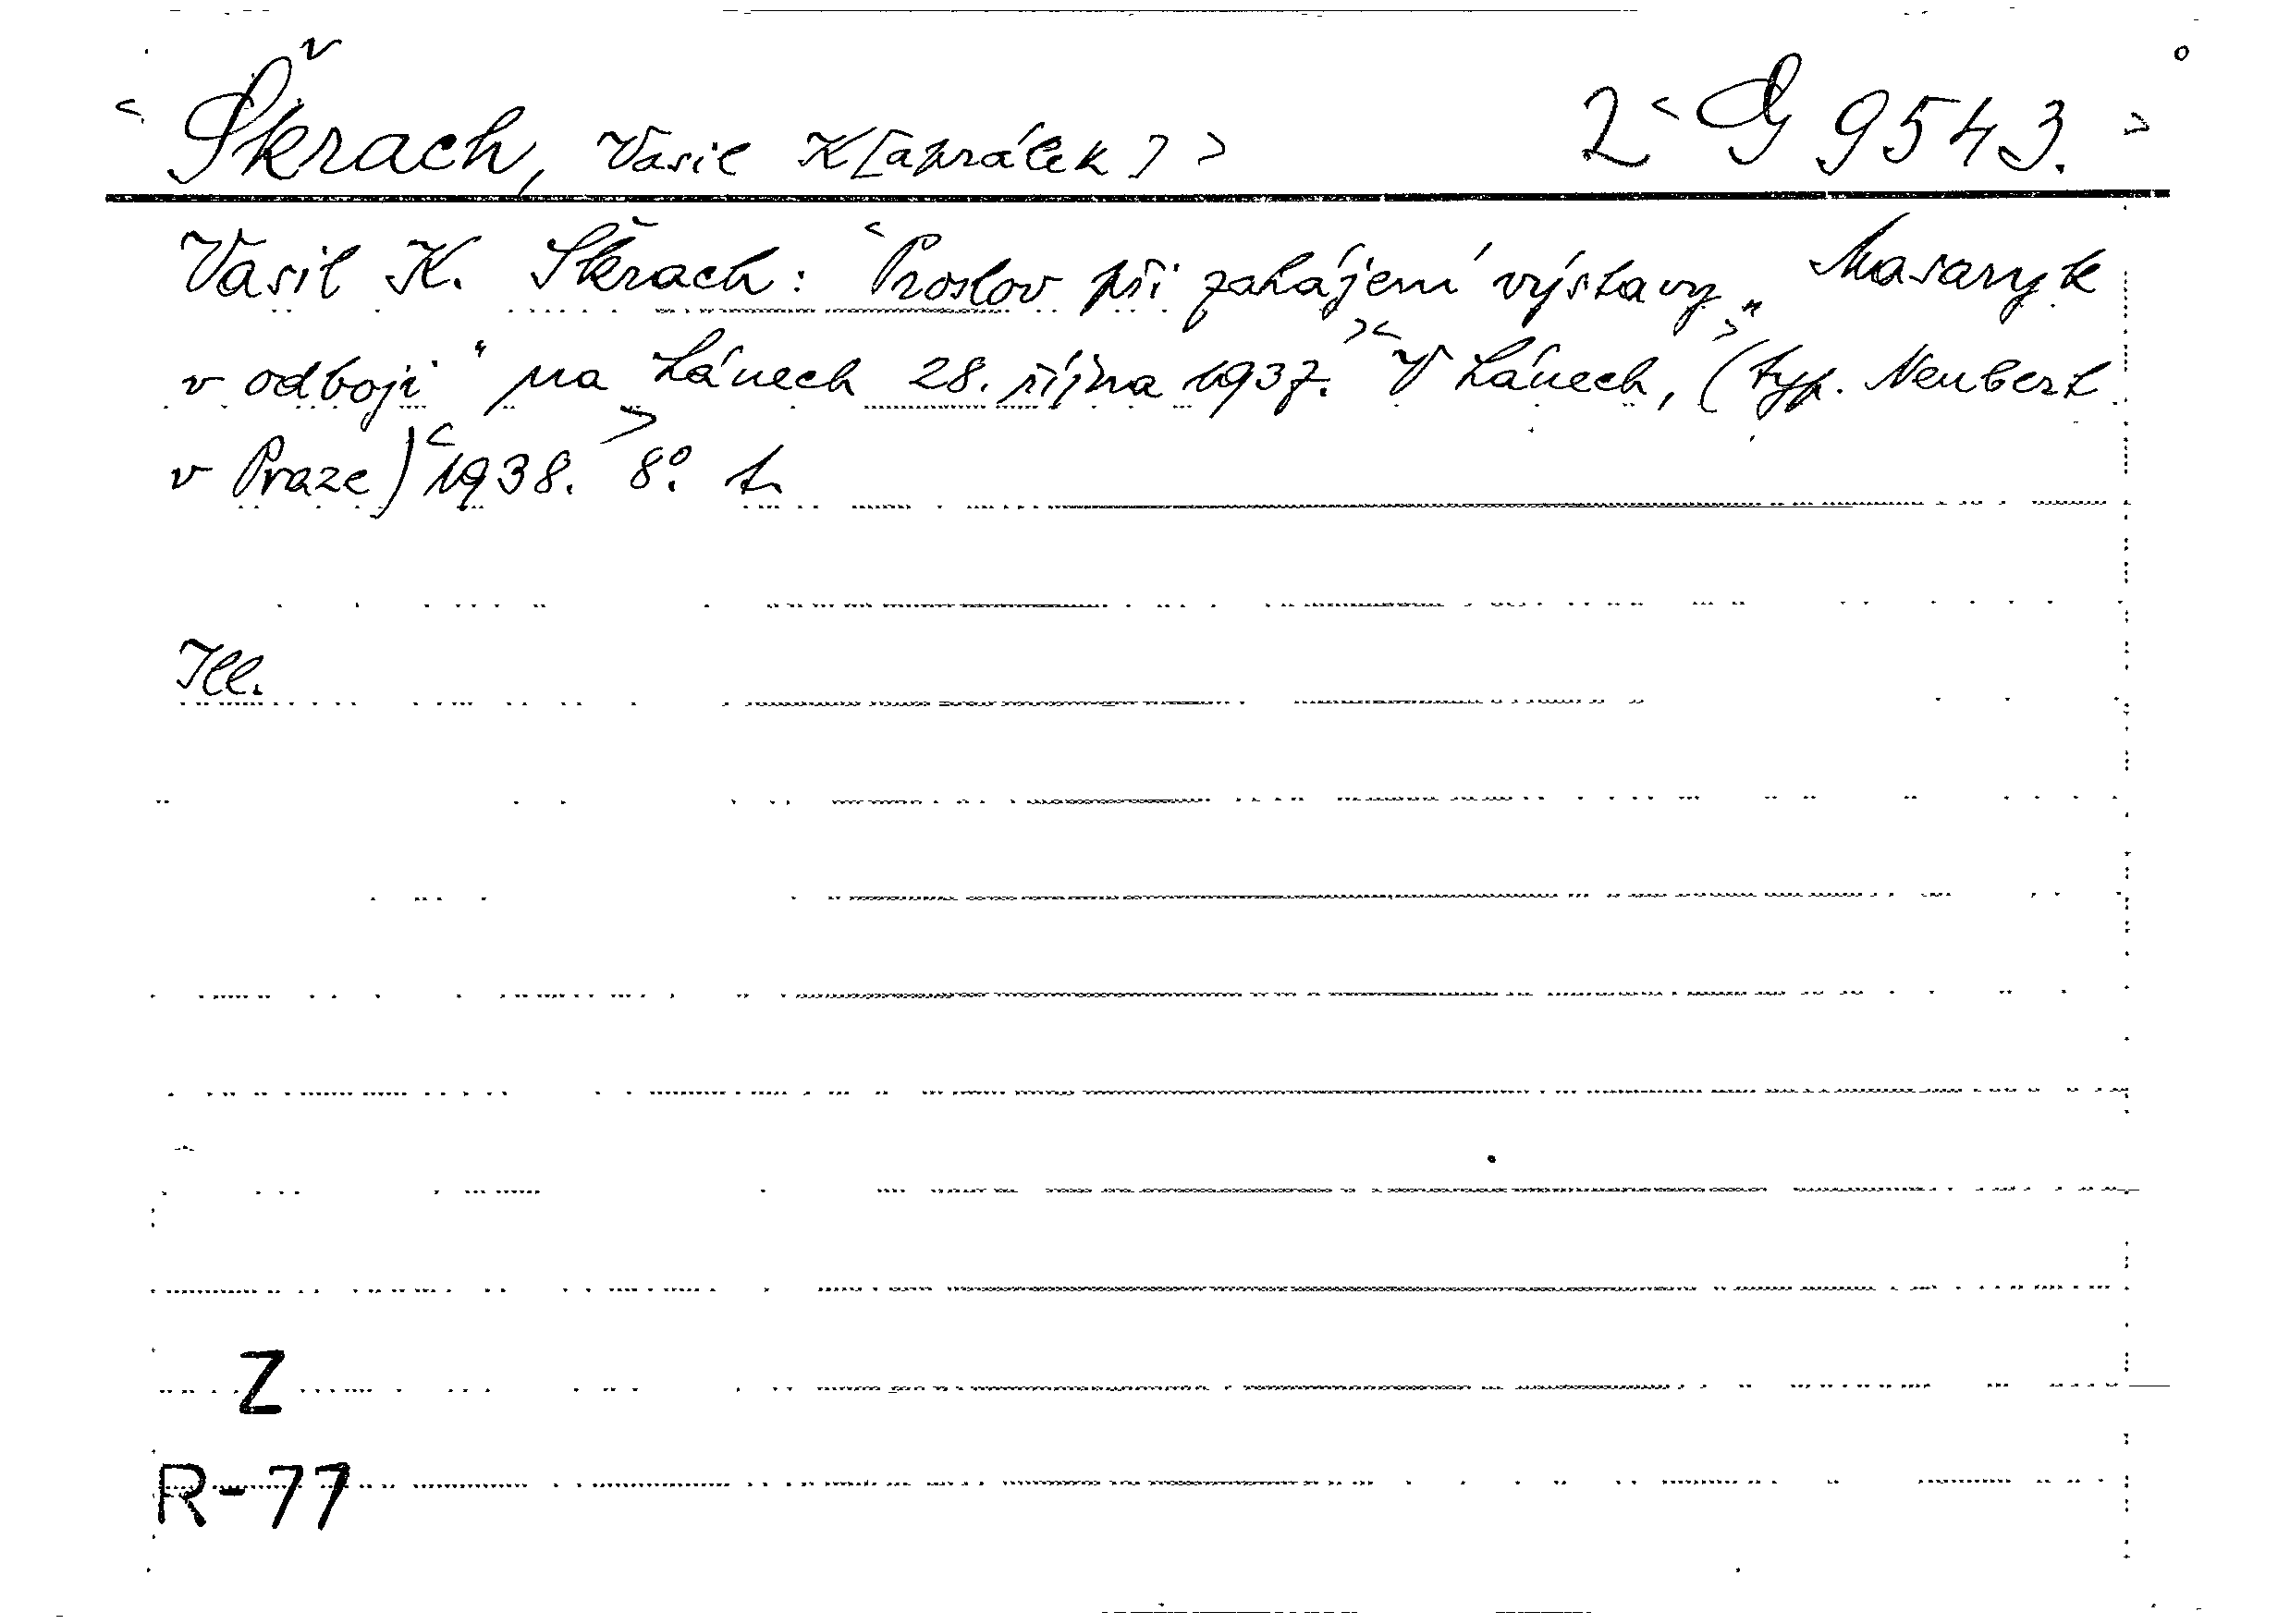 < Škrach, Vasil K[aprálek] > 2 < G 9543. >
Vasil K. Škrach: < Proslov při zahájení výstavy „Masaryk
v odboji“ na Lánech 28. října 1937. > < V Lánech, > (typ. Neubert
v Praze) < 1938. > 8°. t.
Ill.
Z
R-77